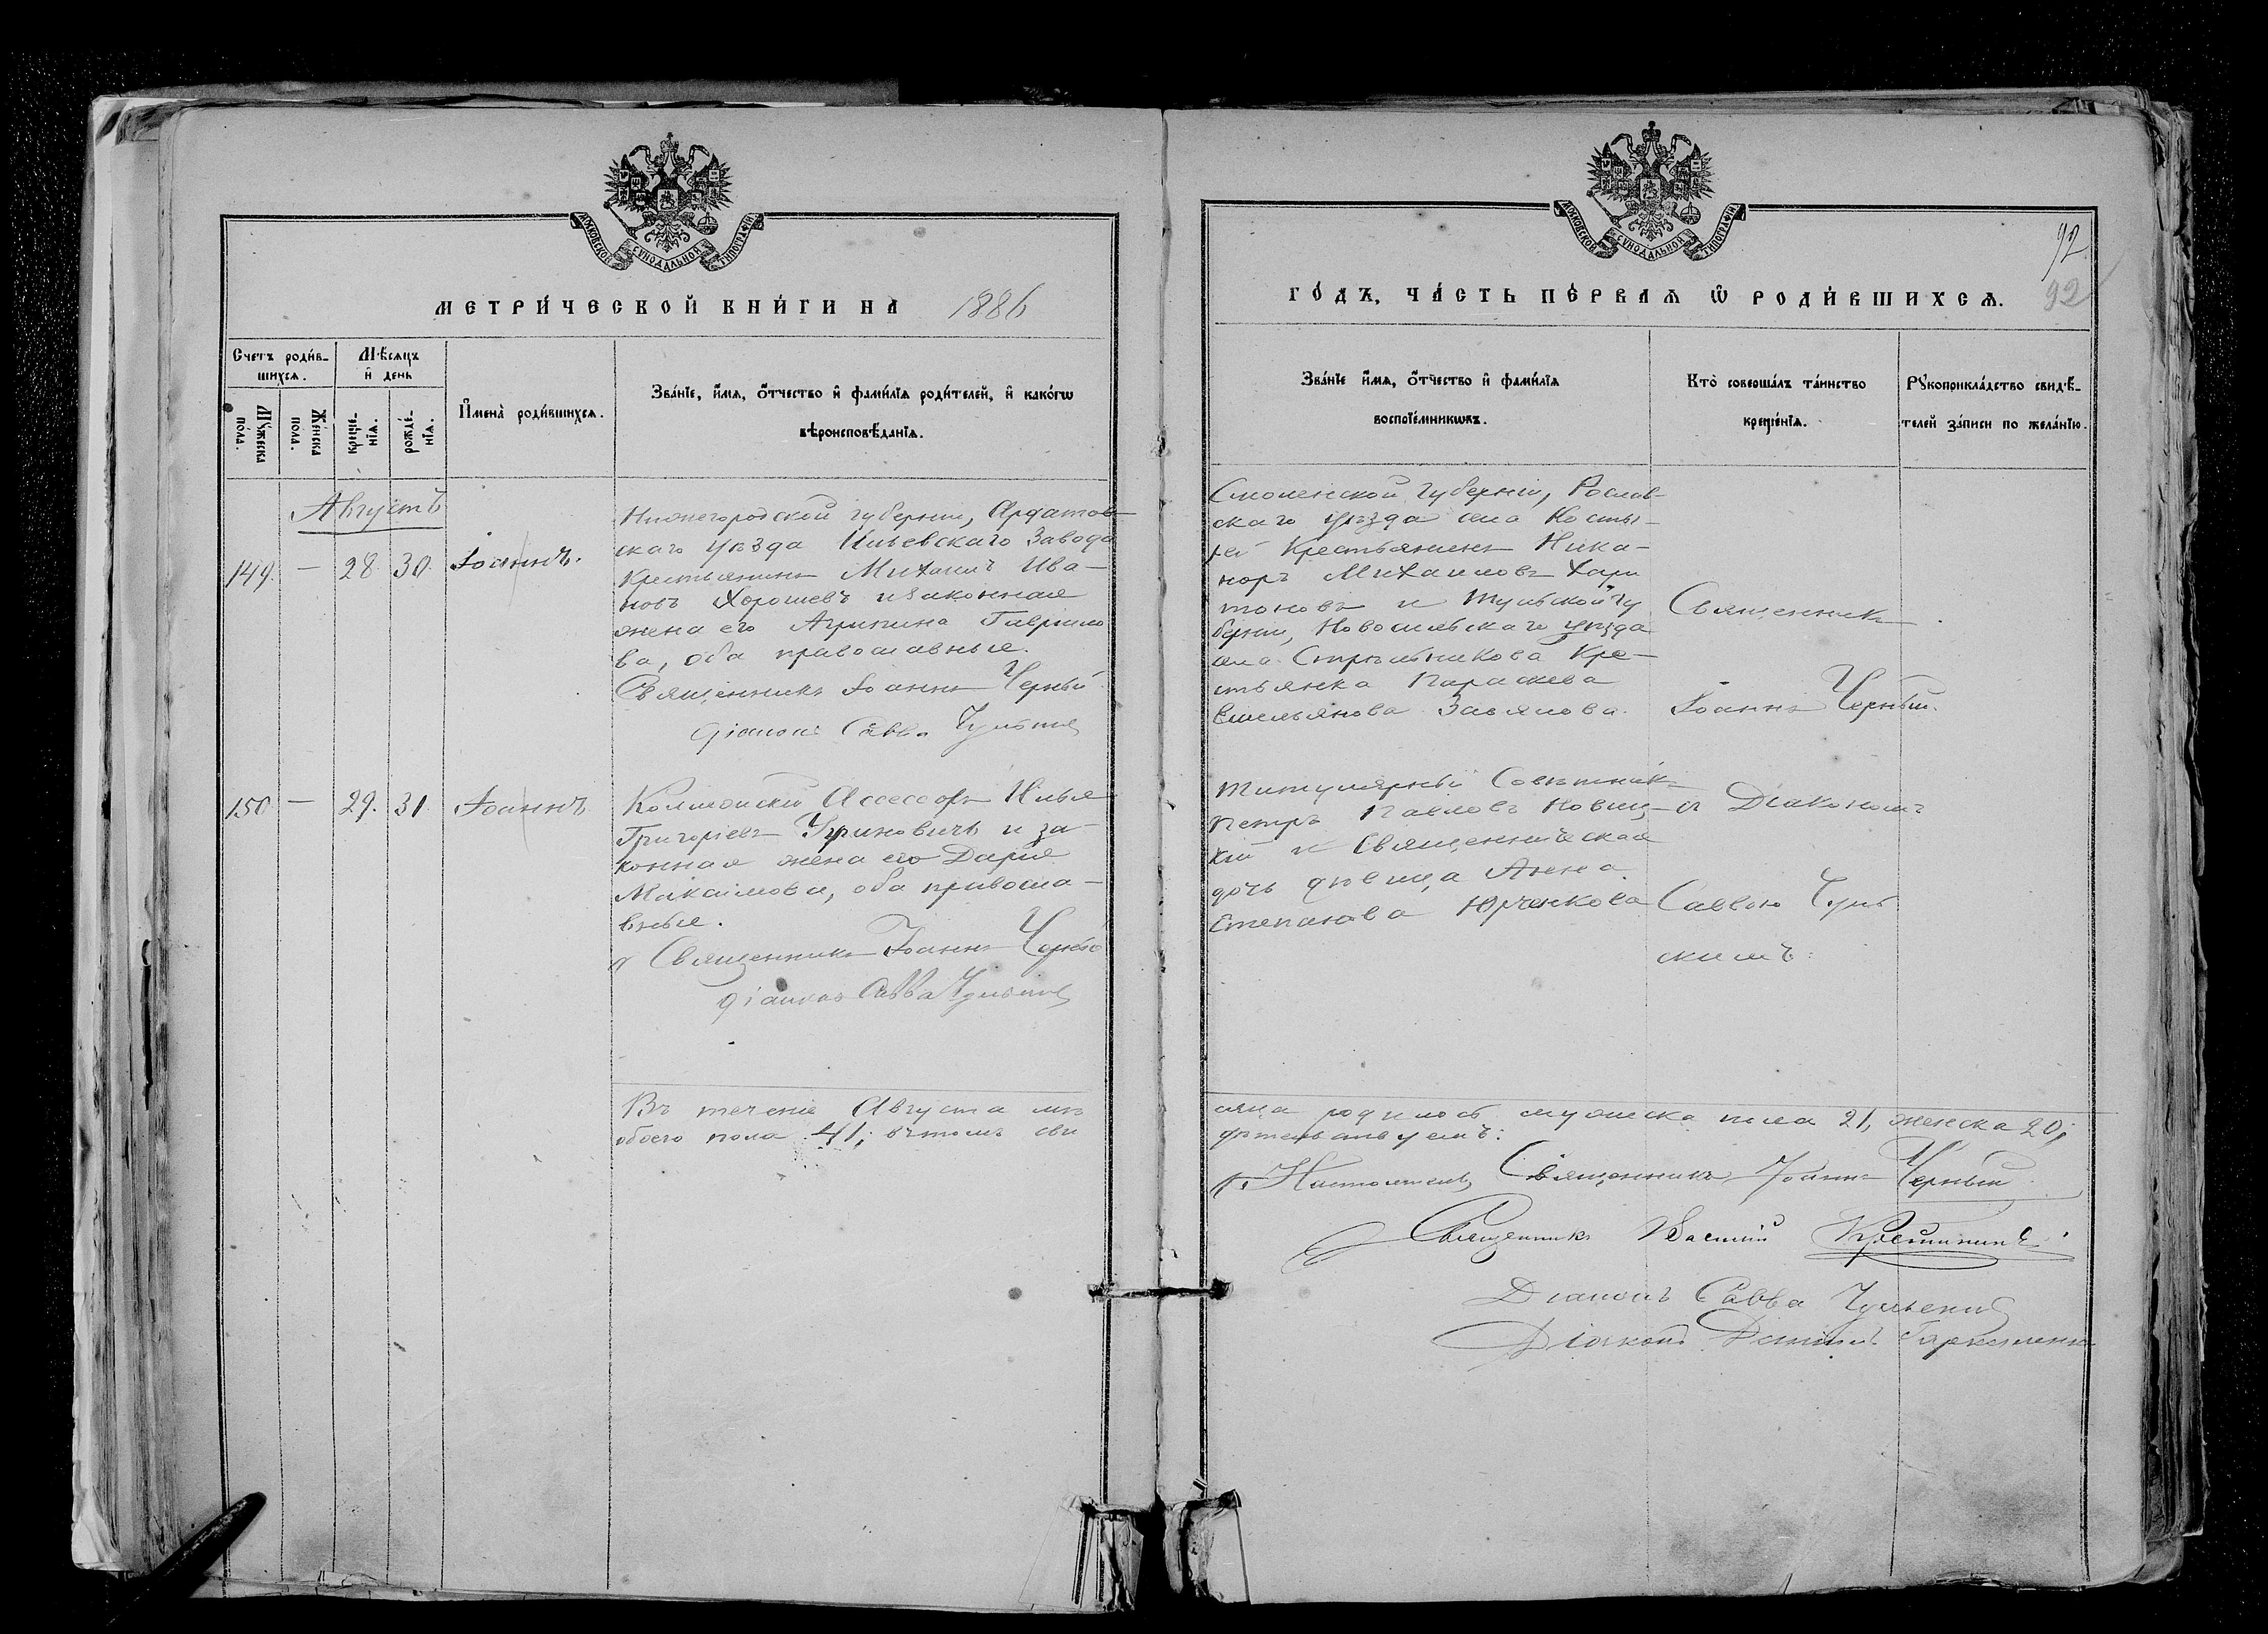 МОСКОВСКОЙ СѴНОДАЛЬНОЙ ТИПОГРАФІИ
МЕТРИ́ЧЕСКОЙ КНИ́ГИ НА 1886
Счетъ роди́в-
шихся.
Мѣсяцъ
и҆ день
Мꙋжеска
пола.
Женска
пола.
креще-
нїѧ.
рожде́-
нїѧ.
И҆мена̀ роди́вшихсѧ.
Зва́нїе, и҆́мѧ, ѻ҆́тчество и҆ фами́лїѧ роди́телей, и҆ како́гѡ
вѣроисповѣ́данїѧ.
Августъ
149. — 28 30. Іоаннъ.
Нижегородской губерніи, Ардатов-
скаго уѣзда Ильевскаго Завода
Крестьянинъ Михаилъ Ива-
новъ Хорошевъ и законная
жена его Агрипина Гаврило
ва, оба православные.
Священникъ Іоаннъ Черный
Діаконъ Савва Чульскій
150 — 29. 31. Іоаннъ
Коллежскій Ассессоръ Илья
Григорьевъ и за-
конная жена его Дарія
оба правосла-
вные.
Священникъ Іоаннъ Черный
Діаконъ Савва Чульскій
Въ теченіе Августа мѣ
обоего пола 41; въ томъ сви
МОСКОВСКОЙ СѴНОДАЛЬНОЙ ТИПОГРАФІИ
92
92
ГО́ДЪ, ЧА́СТЬ ПЕ́РВАѦ Ѡ҆ РОДИ́ВШИХСѦ.
Зва́нїе и҆́мѧ, ѻ҆́тчество и҆ фами́лїѧ
воспрїе́мникѡвъ.
Кто̀ соверша́лъ та́инство
креще́нїѧ.
Рꙋкоприкла́дство свидѣ́-
телей за́писи по жела́нїю.
Смоленской губерніи, Рослав-
скаго уѣзда села Косты-
рей Крестьянинъ Ника-
норъ Михаиловъ Хари
тоновъ и Тульской гу
берніи, Новосильскаго уѣзда
села Стрѣльникова Кре-
стьянка Параскева
Емельянова
Священникъ
Іоаннъ Черный.
Титулярный Совѣтникъ
Петръ Павловъ Новиц-
кій и Священническая
дочь дѣвица Анна
Степанова Юрченкова
Діакономъ
Саввою Чуль
скимъ.
сяца родилось мужеска пола 21, женска 20;
дѣтельствуемъ:
Настоятель Священникъ Іоаннъ Черный
Священникъ Василій
Діаконъ Савва Чульскій
Діаконъ